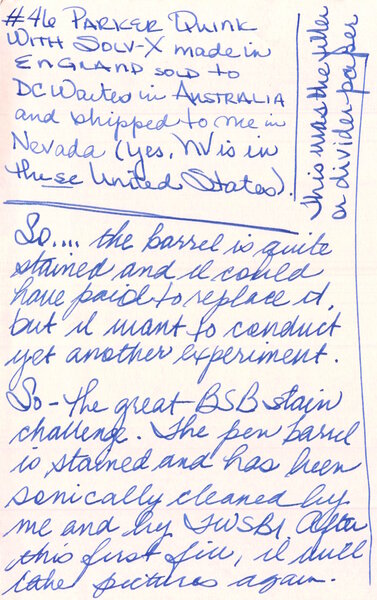 #46 PARKER QUINK
WITH SOLV-X made in
ENGLAND SOLD to
DC Waites in AUSTRALIA
and shipped to me in
Nevada (yes, NV is in
these United States).
This was the filler
or divider-paper
So.... the barrel is quite
stained and I could
have paid to replace it,
but I want to conduct
yet another experiment.
So - the great BSB stain
challenge. The pen barrel
is stained and has been
sonically cleaned by
me and by TWSBI. After
this first fill, I will
take pictures again.